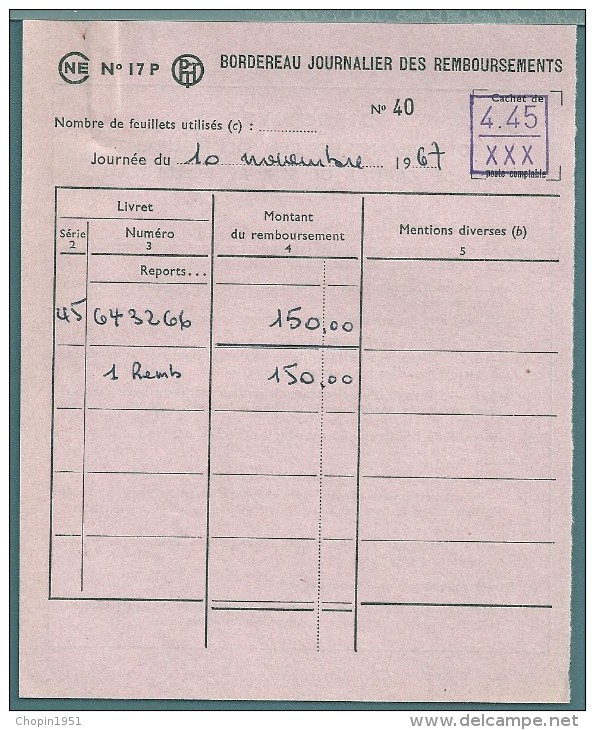 CNE Nº 17 P PTT BORDEREAU JOURNALIER DES REMBOURSEMENTS
Nº 40
Cachet de
4.45
XXX
poste comptable
Nombre de feuillets utilisés (c) : ................
Journée du 10 novembre 1967
Livret
Montant du remboursement
Mentions diverses (b)
Série Numéro
2 3 4 5
Reports...
45 643266 150,00
1 Remb 150,00
Chopin1951
www.delcampe.net